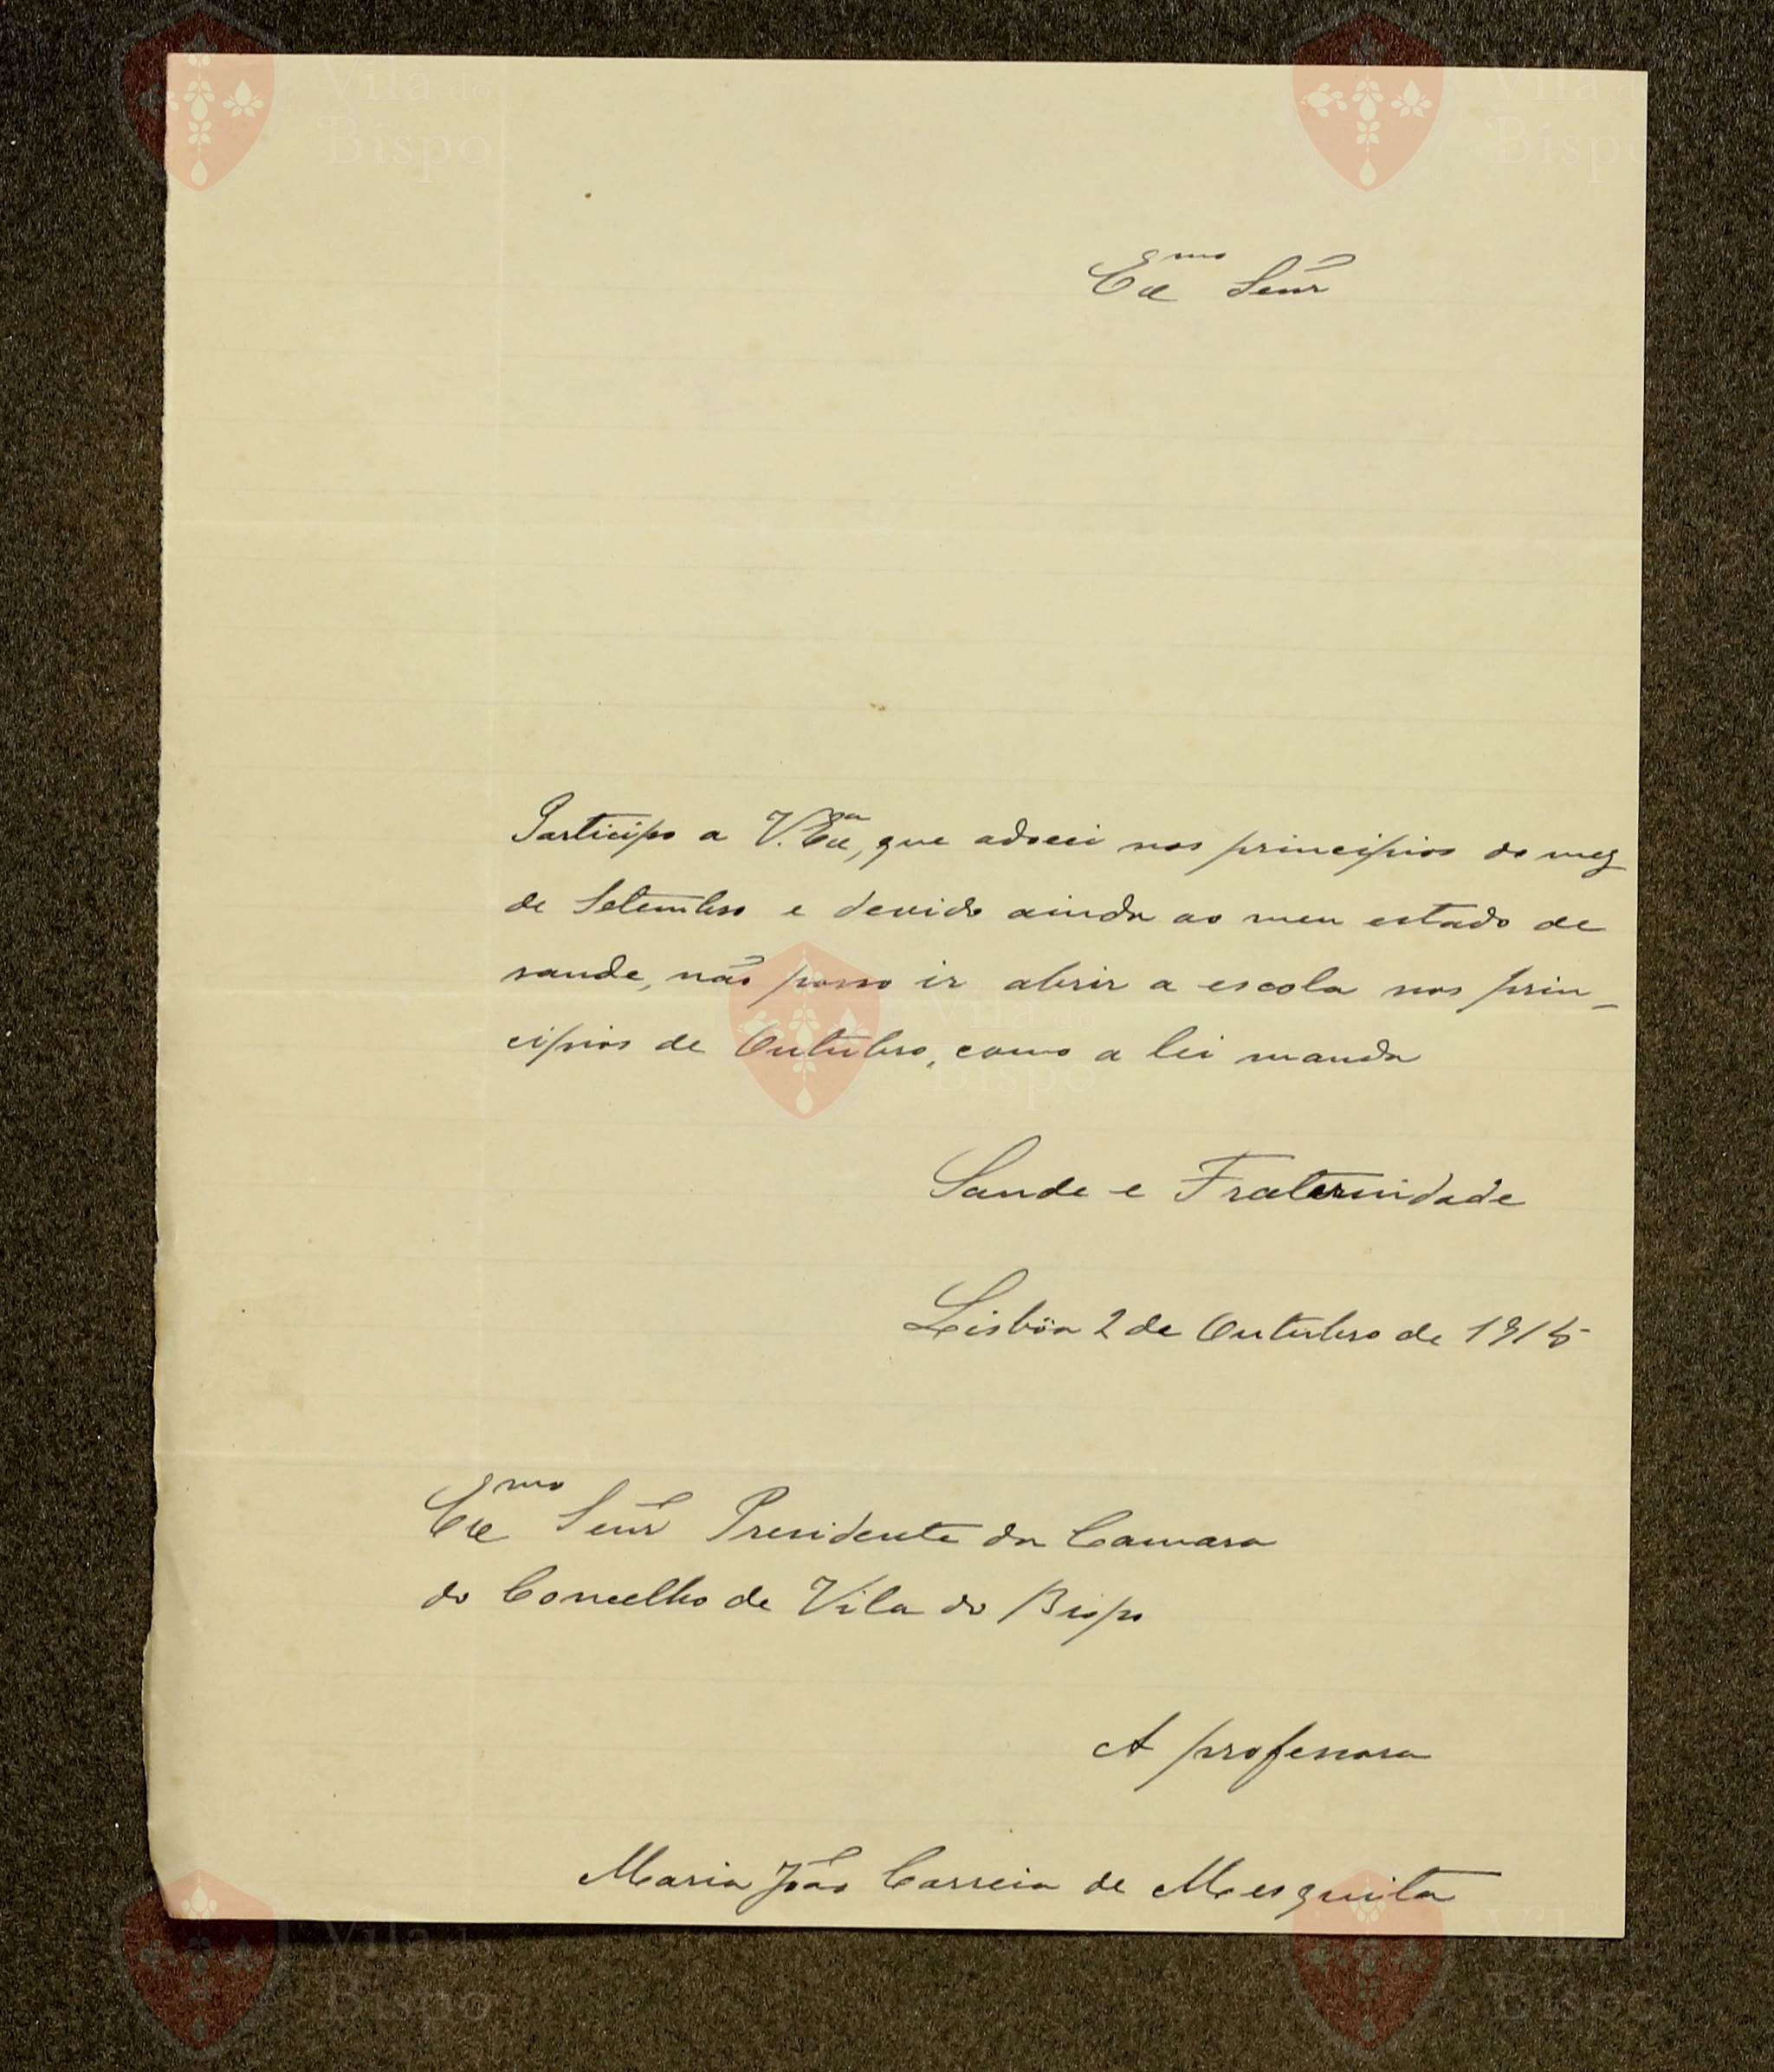 Vila do
Bispo
Vila
Bisp
Exᵐᵒ Senr
Participo a V. Exᵃ, que adoeci nos principios do mez
de Setembro e devido ainda ao meu estado de
saude, não posso ir abrir a escola nos prin-
cipios de Outubro, como a lei manda
Vila do
Bispo
Saude e Fraternidade
Lisbôa 2 de Outubro de 1915
Exᵐᵒ Senr Presidente da Camara
do Concelho de Vila do Bispo
A professora
Maria João Correia de Mesquita
Vila do
Bispo
Vila do
Bispo